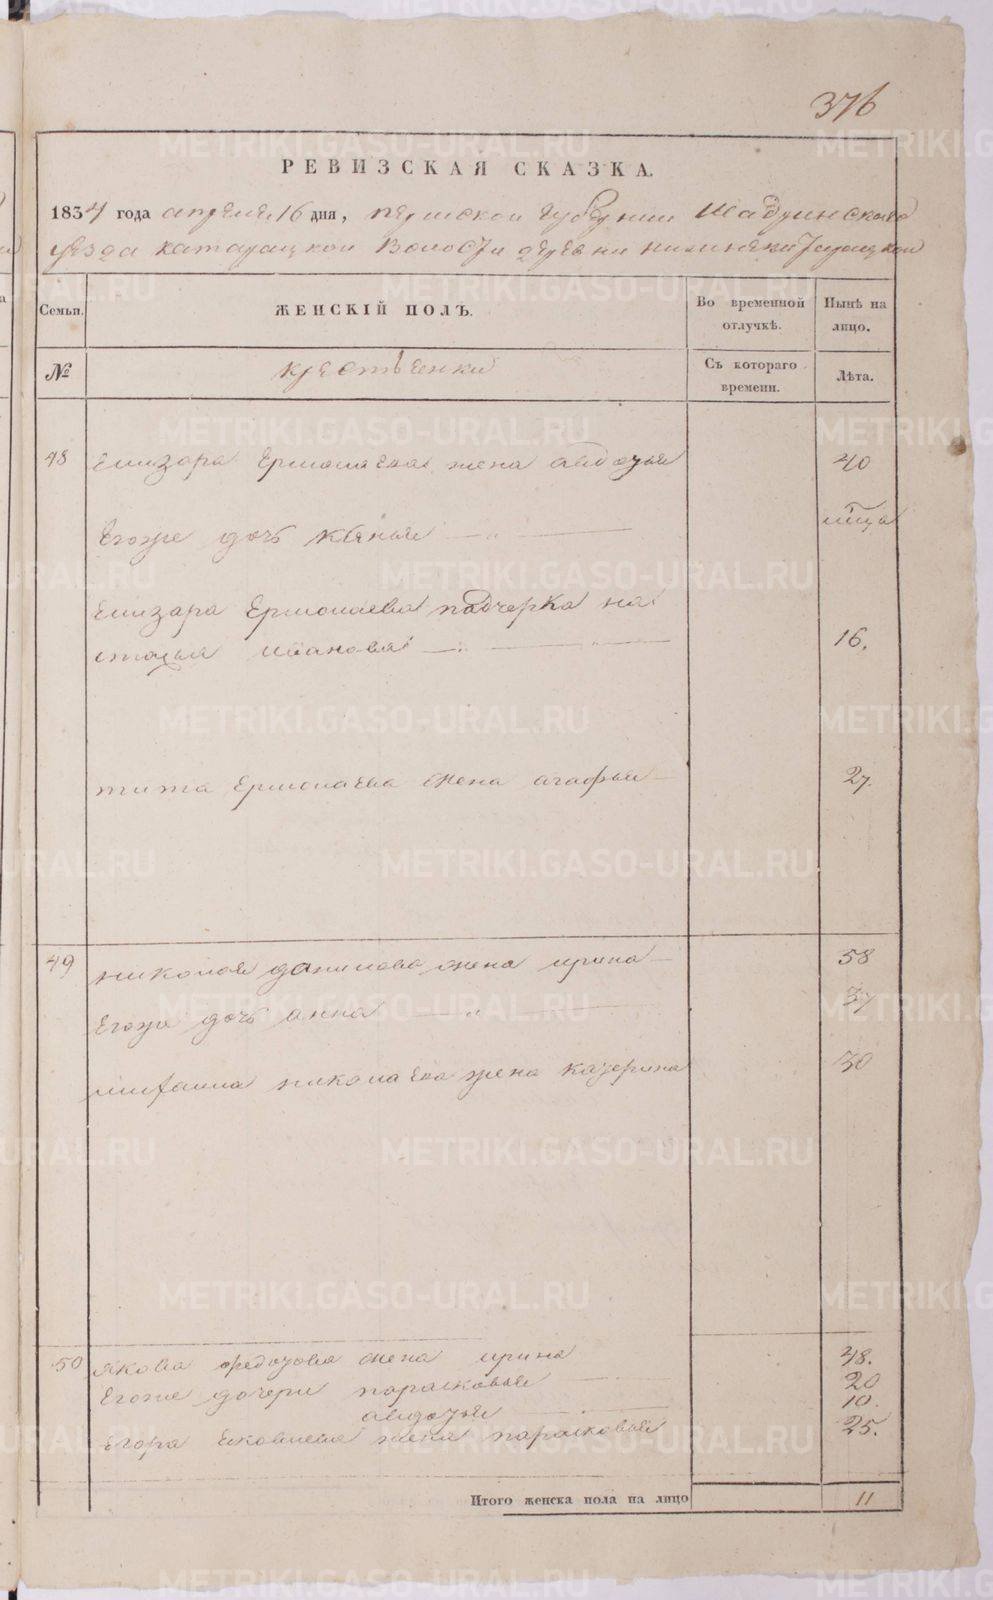 376
РЕВИЗСКАЯ СКАЗКА.
1834 года апреля 16 дня, пермской губернии Шадринскаго
уезда катарацкой волости деревни
Семьи. ЖЕНСКІЙ ПОЛЪ. Во временной отлучкѣ. Нынѣ на лицо.
№ крестьенки Съ котораго времени. Лѣта.
48 Елизара Ермолаева жена авдотья 40
Егоже дочь
Елизара Ермолаева падчерка на
стасья иванова 16.
тита Ермолаева жена агафья 27.
49 николая данилова жена ирина 58
Егоже дочь анна 37
михаила николаева жена катерина 30
50 якова федотова жена ирина 48.
Егоже дочери парасковья 20
авдотья 10.
Егора Яковлева жена парасковья 25.
Итого женска пола на лицо 11
METRIKI.GASO-URAL.RU